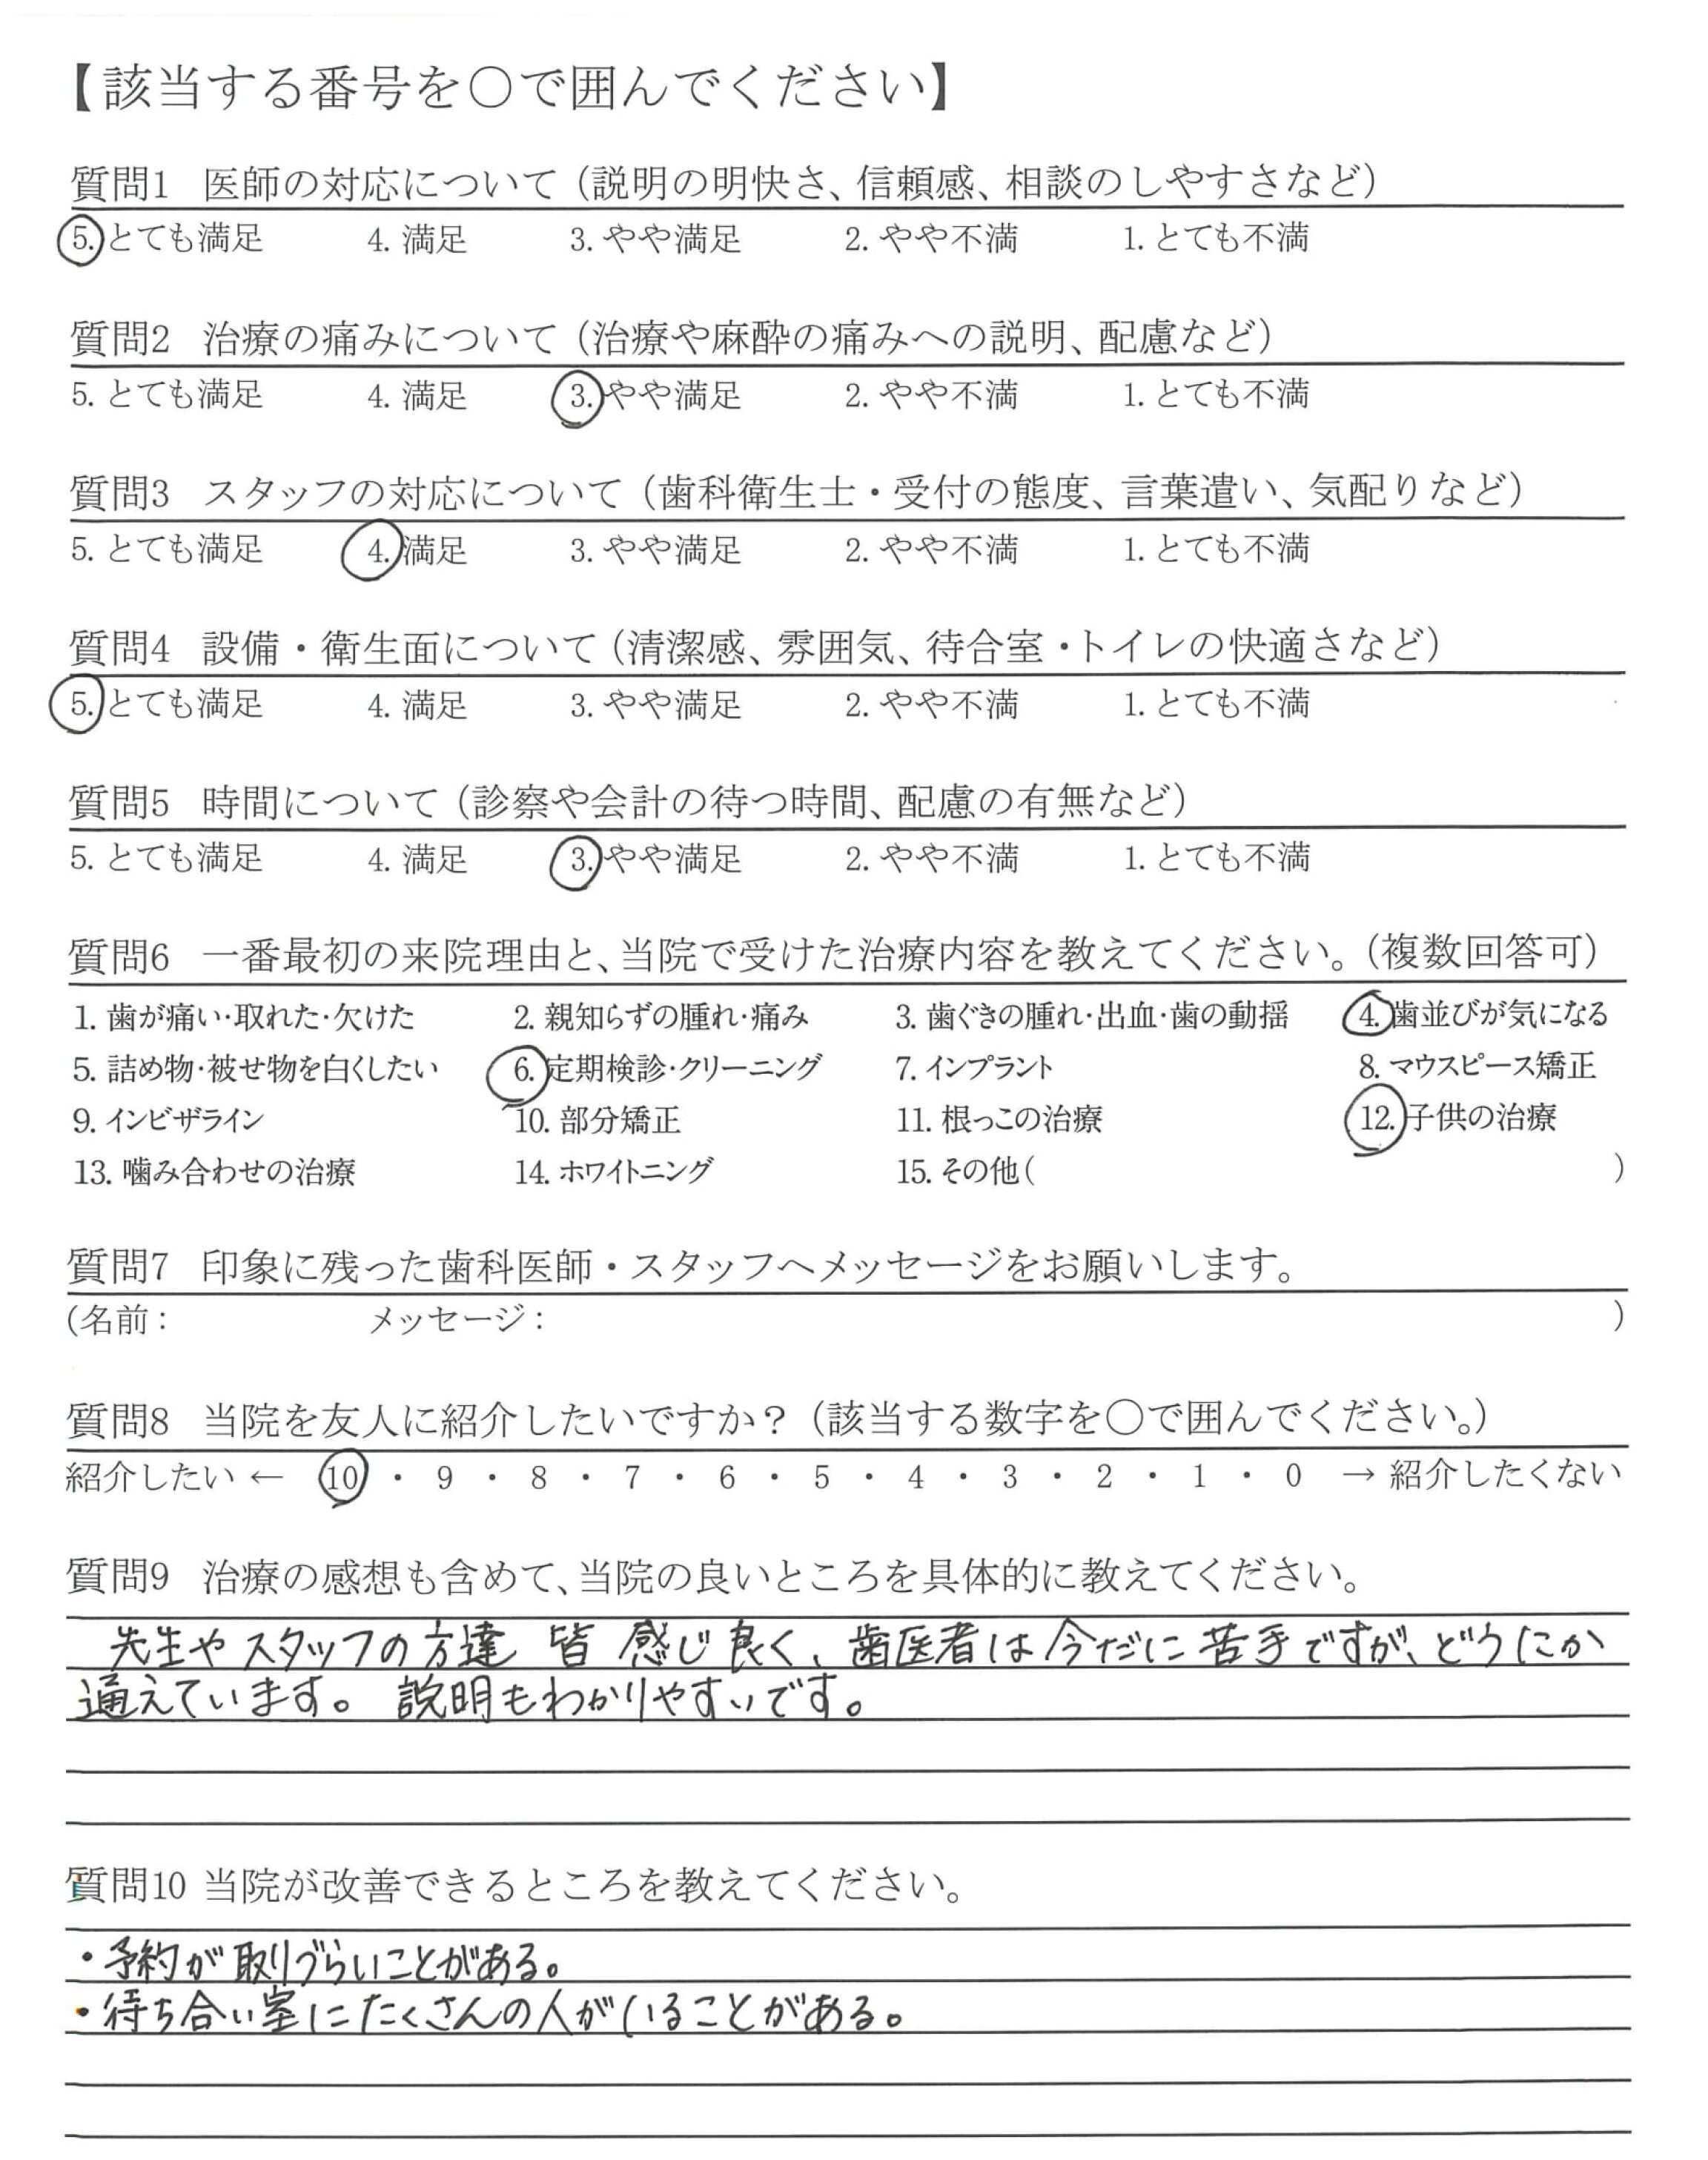 【該当する番号を〇で囲んでください】
質問1 医師の対応について（説明の明快さ、信頼感、相談のしやすさなど）
5. とても満足 4. 満足 3. やや満足 2. やや不満 1. とても不満
質問2 治療の痛みについて（治療や麻酔の痛みへの説明、配慮など）
5. とても満足 4. 満足 3. やや満足 2. やや不満 1. とても不満
質問3 スタッフの対応について（歯科衛生士・受付の態度、言葉遣い、気配りなど）
5. とても満足 4. 満足 3. やや満足 2. やや不満 1. とても不満
質問4 設備・衛生面について（清潔感、雰囲気、待合室・トイレの快適さなど）
5. とても満足 4. 満足 3. やや満足 2. やや不満 1. とても不満
質問5 時間について（診察や会計の待つ時間、配慮の有無など）
5. とても満足 4. 満足 3. やや満足 2. やや不満 1. とても不満
質問6 一番最初の来院理由と、当院で受けた治療内容を教えてください。（複数回答可）
1. 歯が痛い・取れた・欠けた 2. 親知らずの腫れ・痛み 3. 歯ぐきの腫れ・出血・歯の動揺 4. 歯並びが気になる
5. 詰め物・被せ物を白くしたい 6. 定期検診・クリーニング 7. インプラント 8. マウスピース矯正
9. インビザライン 10. 部分矯正 11. 根っこの治療 12. 子供の治療
13. 噛み合わせの治療 14. ホワイトニング 15. その他（ ）
質問7 印象に残った歯科医師・スタッフへメッセージをお願いします。
（名前： メッセージ： ）
質問8 当院を友人に紹介したいですか？（該当する数字を〇で囲んでください。）
紹介したい ← 10 ・ 9 ・ 8 ・ 7 ・ 6 ・ 5 ・ 4 ・ 3 ・ 2 ・ 1 ・ 0 → 紹介したくない
質問9 治療の感想も含めて、当院の良いところを具体的に教えてください。
先生やスタッフの方達 皆 感じ良く、歯医者は今だに苦手ですが、どうにか
通えています。説明もわかりやすいです。
質問10 当院が改善できるところを教えてください。
・予約が取りづらいことがある。
・待ち合い室にたくさんの人がいることがある。